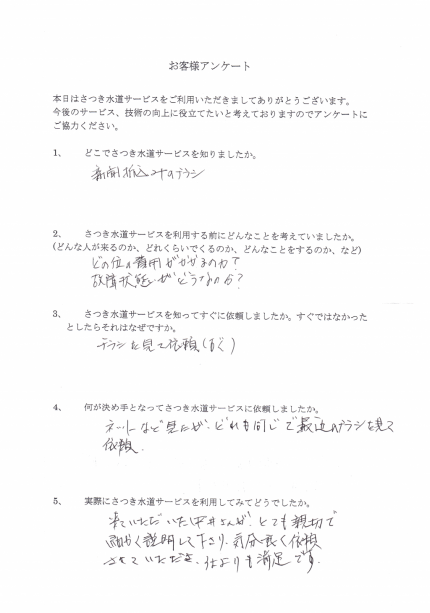 お客様アンケート
本日はさつき水道サービスをご利用いただきましてありがとうございます。
今後のサービス、技術の向上に役立てたいと考えておりますのでアンケートに
ご協力ください。
1、 どこでさつき水道サービスを知りましたか。
新聞折込みのチラシ
2、 さつき水道サービスを利用する前にどんなことを考えていましたか。
(どんな人が来るのか、どれくらいでくるのか、どんなことをするのか、など)
どの位の費用がかかるのか?
故障状態がどうなのか?
3、 さつき水道サービスを知ってすぐに依頼しましたか。すぐではなかった
としたらそれはなぜですか。
チラシを見て依頼(すぐ)
4、 何が決め手となってさつき水道サービスに依頼しましたか。
ネットなど見たが、どれも同じで最近のチラシを見て
依頼.
5、 実際にさつき水道サービスを利用してみてどうでしたか。
来ていただいた平井さんが、とても親切で
細かく説明して下さり、気分良く依頼
させていただき、何よりも満足です.